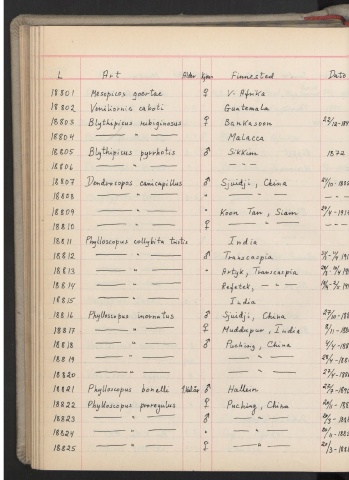 L Art Alder Kjønn Finnested Dato
18801 Mesopicos goertae ♀ V. Afrika
18802 Veniliornis caboti Guatemala
18803 Blythipicus rubiginosus ♀ Bankasoon
18804 — " — Malacca
18805 Blythipicus pyrrhotis ♂ Sikkim 1872
18806 — " — — " —
18807 Dendrocopos canicapillus ♂ Sjuidji, China
18808 — " — " — " —
18809 — " — " Koon Tan, Siam
18810 — " — ♀ — " —
18811 Phylloscopus collybita tristis India
18812 — " — ♂ Transcaspia
18813 — " — " Artyk, Transcaspia
18814 — " — Repetek, — " —
18815 — " — India
18816 Phylloscopus inornatus ♂ Sjuidji, China
18817 — " — ♀ Muddapur, India
18818 — " — ♂ Fuching, China
18819 — " — — " —
18820 — " — — " —
18821 Phylloscopus bonelli ♂ Hallein
18822 Phylloscopus proregulus ♀ Fuching, China
18823 — " — ♂ — " —
18824 — " — " — " —
18825 — " — ♀ — " —